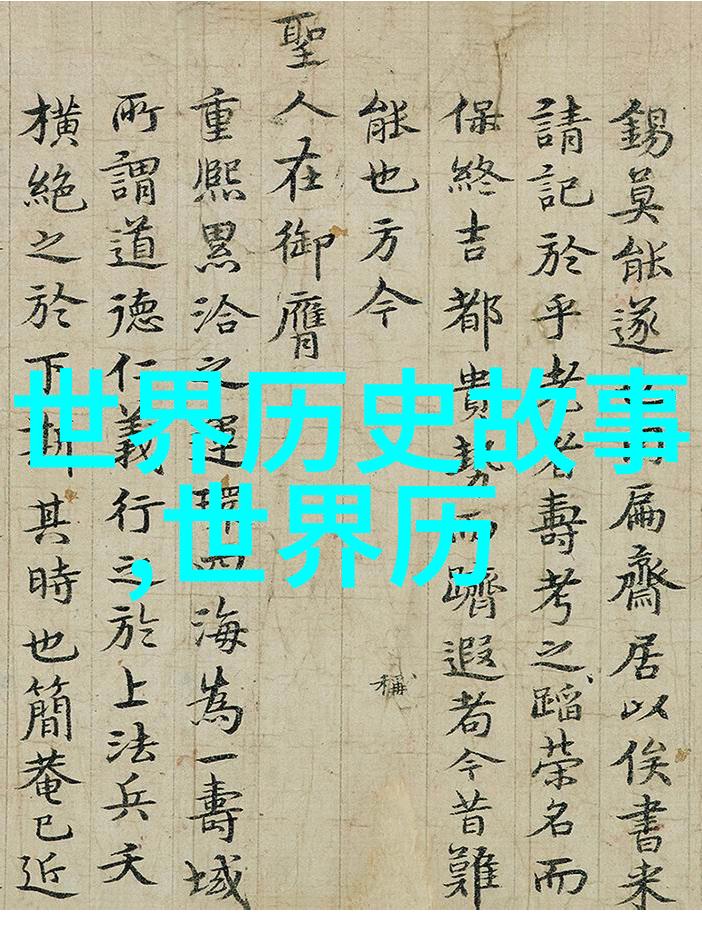 錫莫能遂扁齋居以俟書来
請記於乎老者壽考之蹈荣名而
保終吉都貴勢而躋遐耇今昔難
能也方今
稱
聖人在御膺
重熙累洽之運四海為一壽域
所謂道德仁義行之於上法兵夭
橫絶之於下其時也簡菴已近
世界历史故事
,世界历